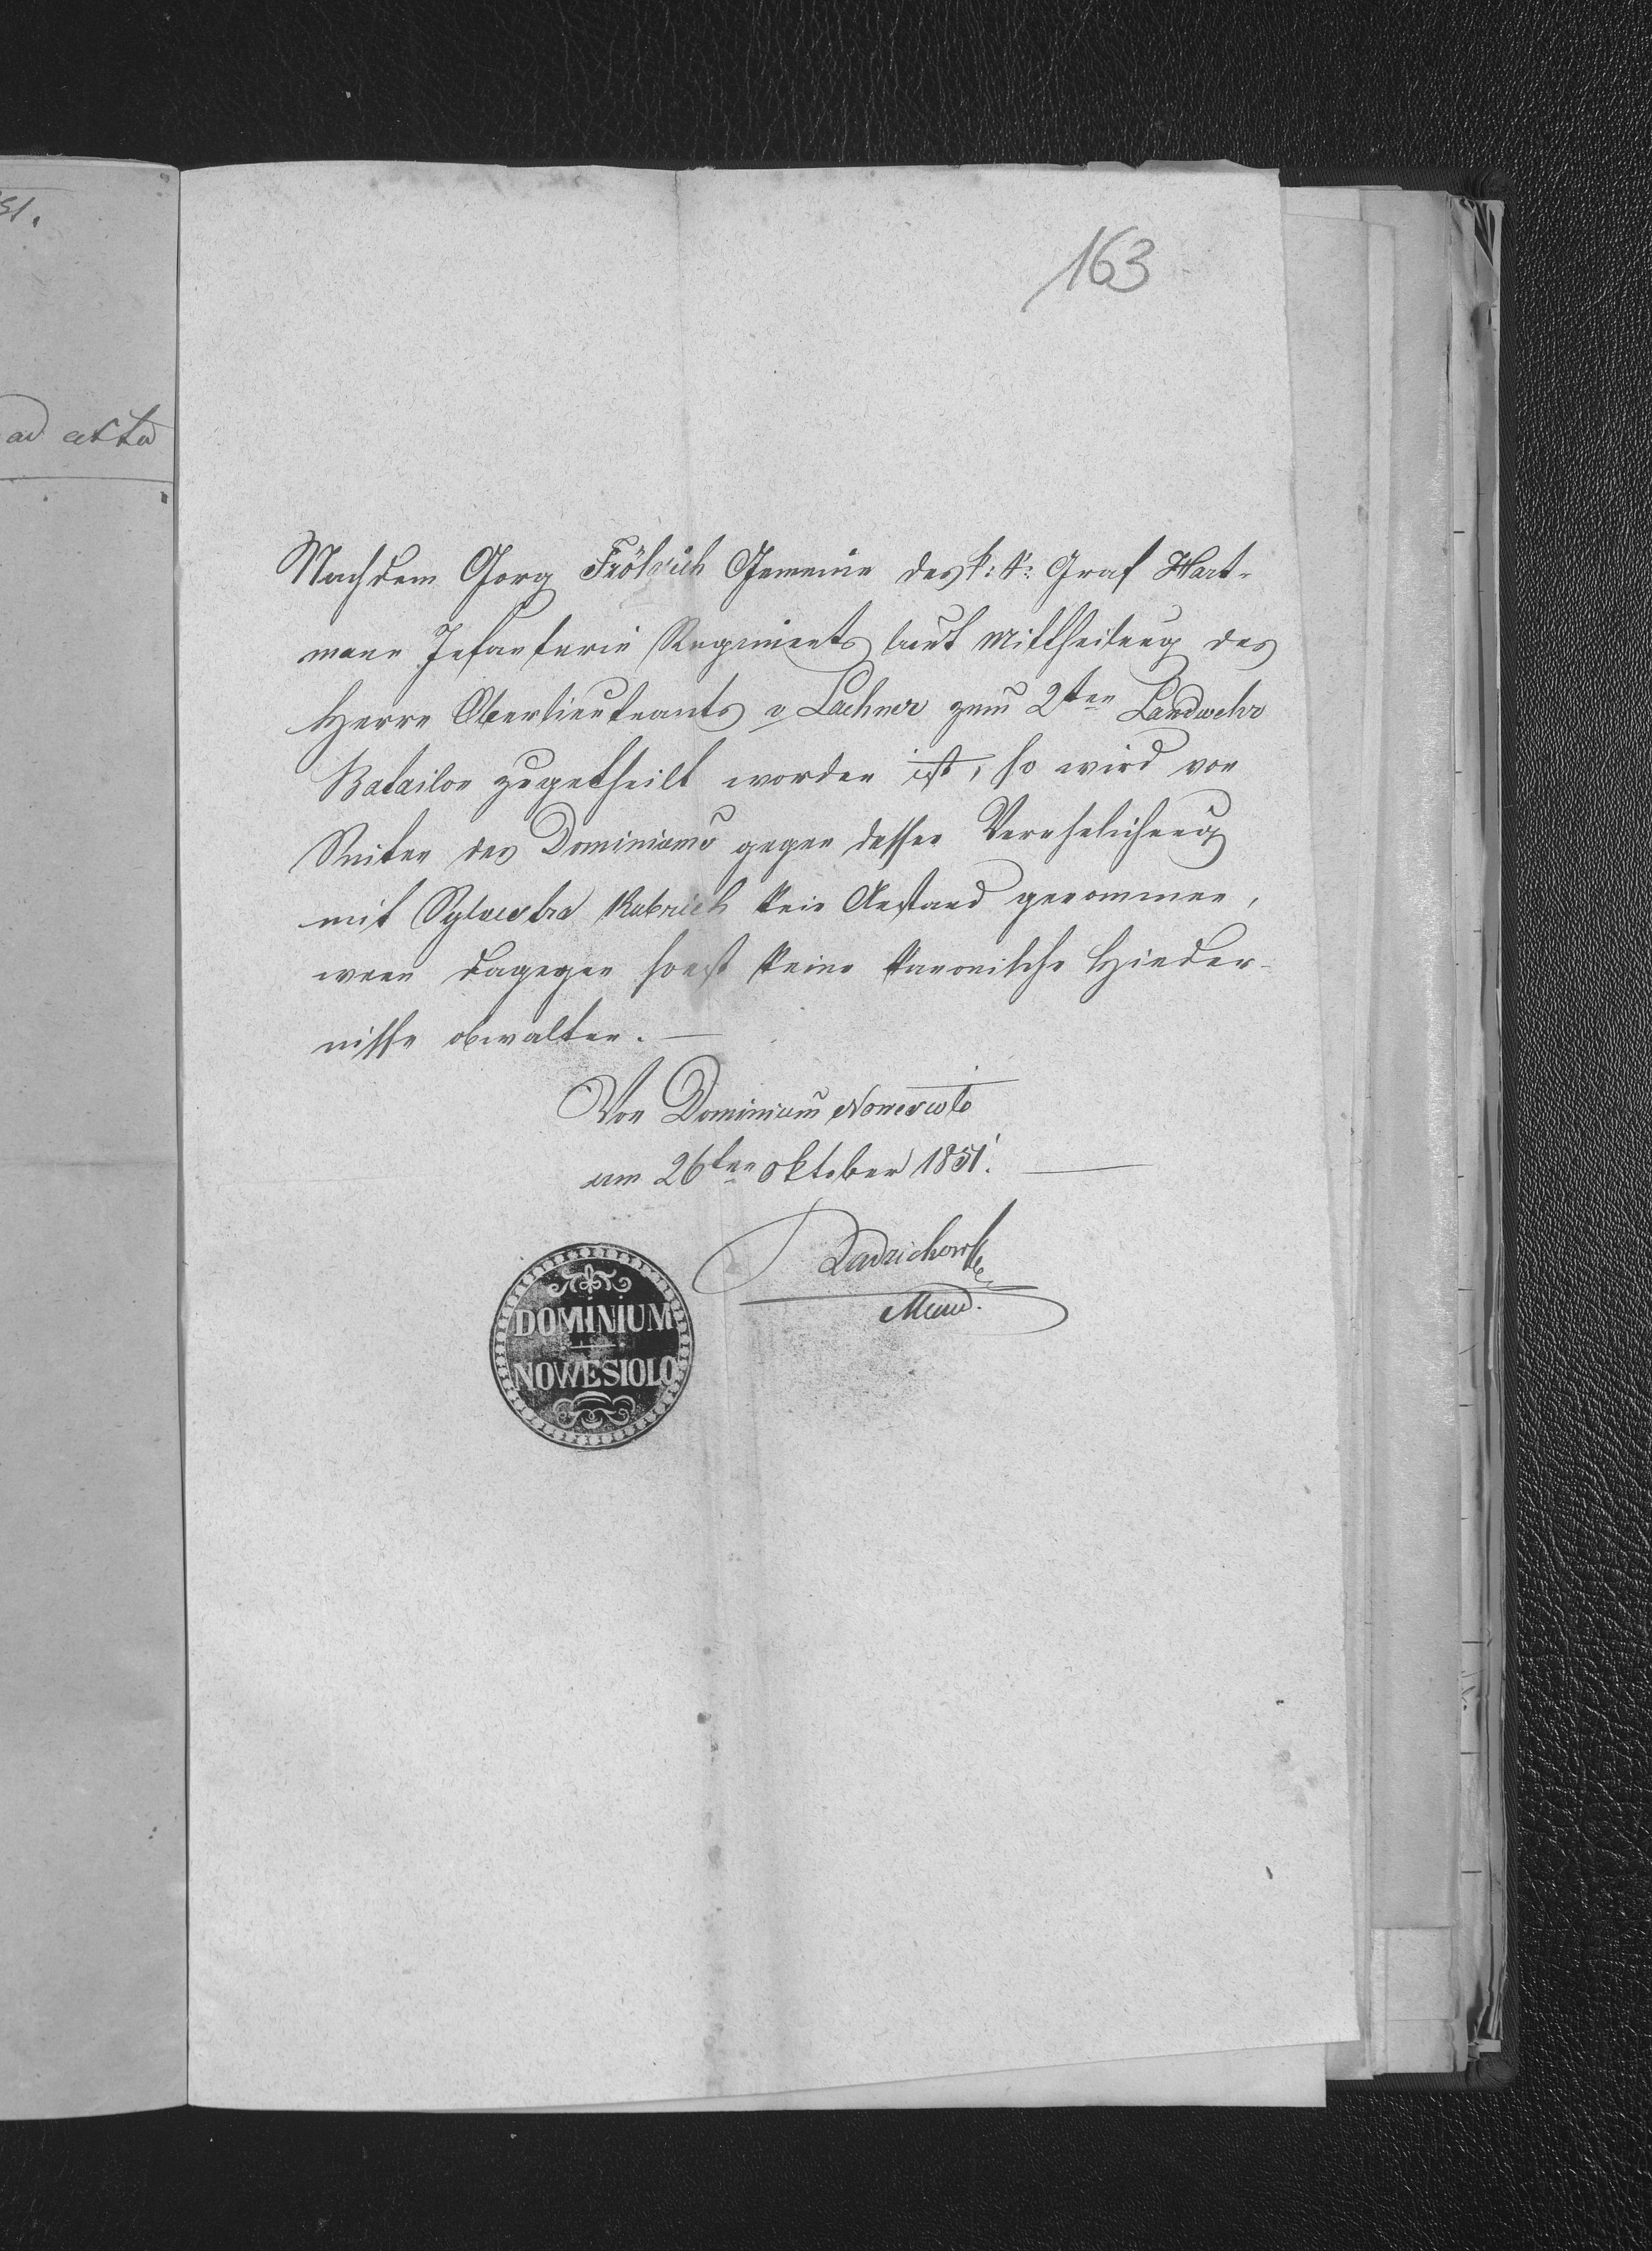 51.
ad acta
163
Nachdem Georg Fröhlich Gemeine des k: k: Graf Hart-
mann Infanterie Regiments laut Mittheilung des
Herrn Oberlieutenants v Lachner zum 2ten Landwehr
Batailon zugetheilt worden ist, so wird von
Seiten des Dominiums gegen dessen Verehelichung
mit Sylvestra kein Anstand genommen,
wenn dagegen sonst keine kanonische Hinder-
nisse obwalten. —
Von Dominium Nowesioło
am 26ten Oktober 1851. —
Mand.
DOMINIUM
NOWESIOLO